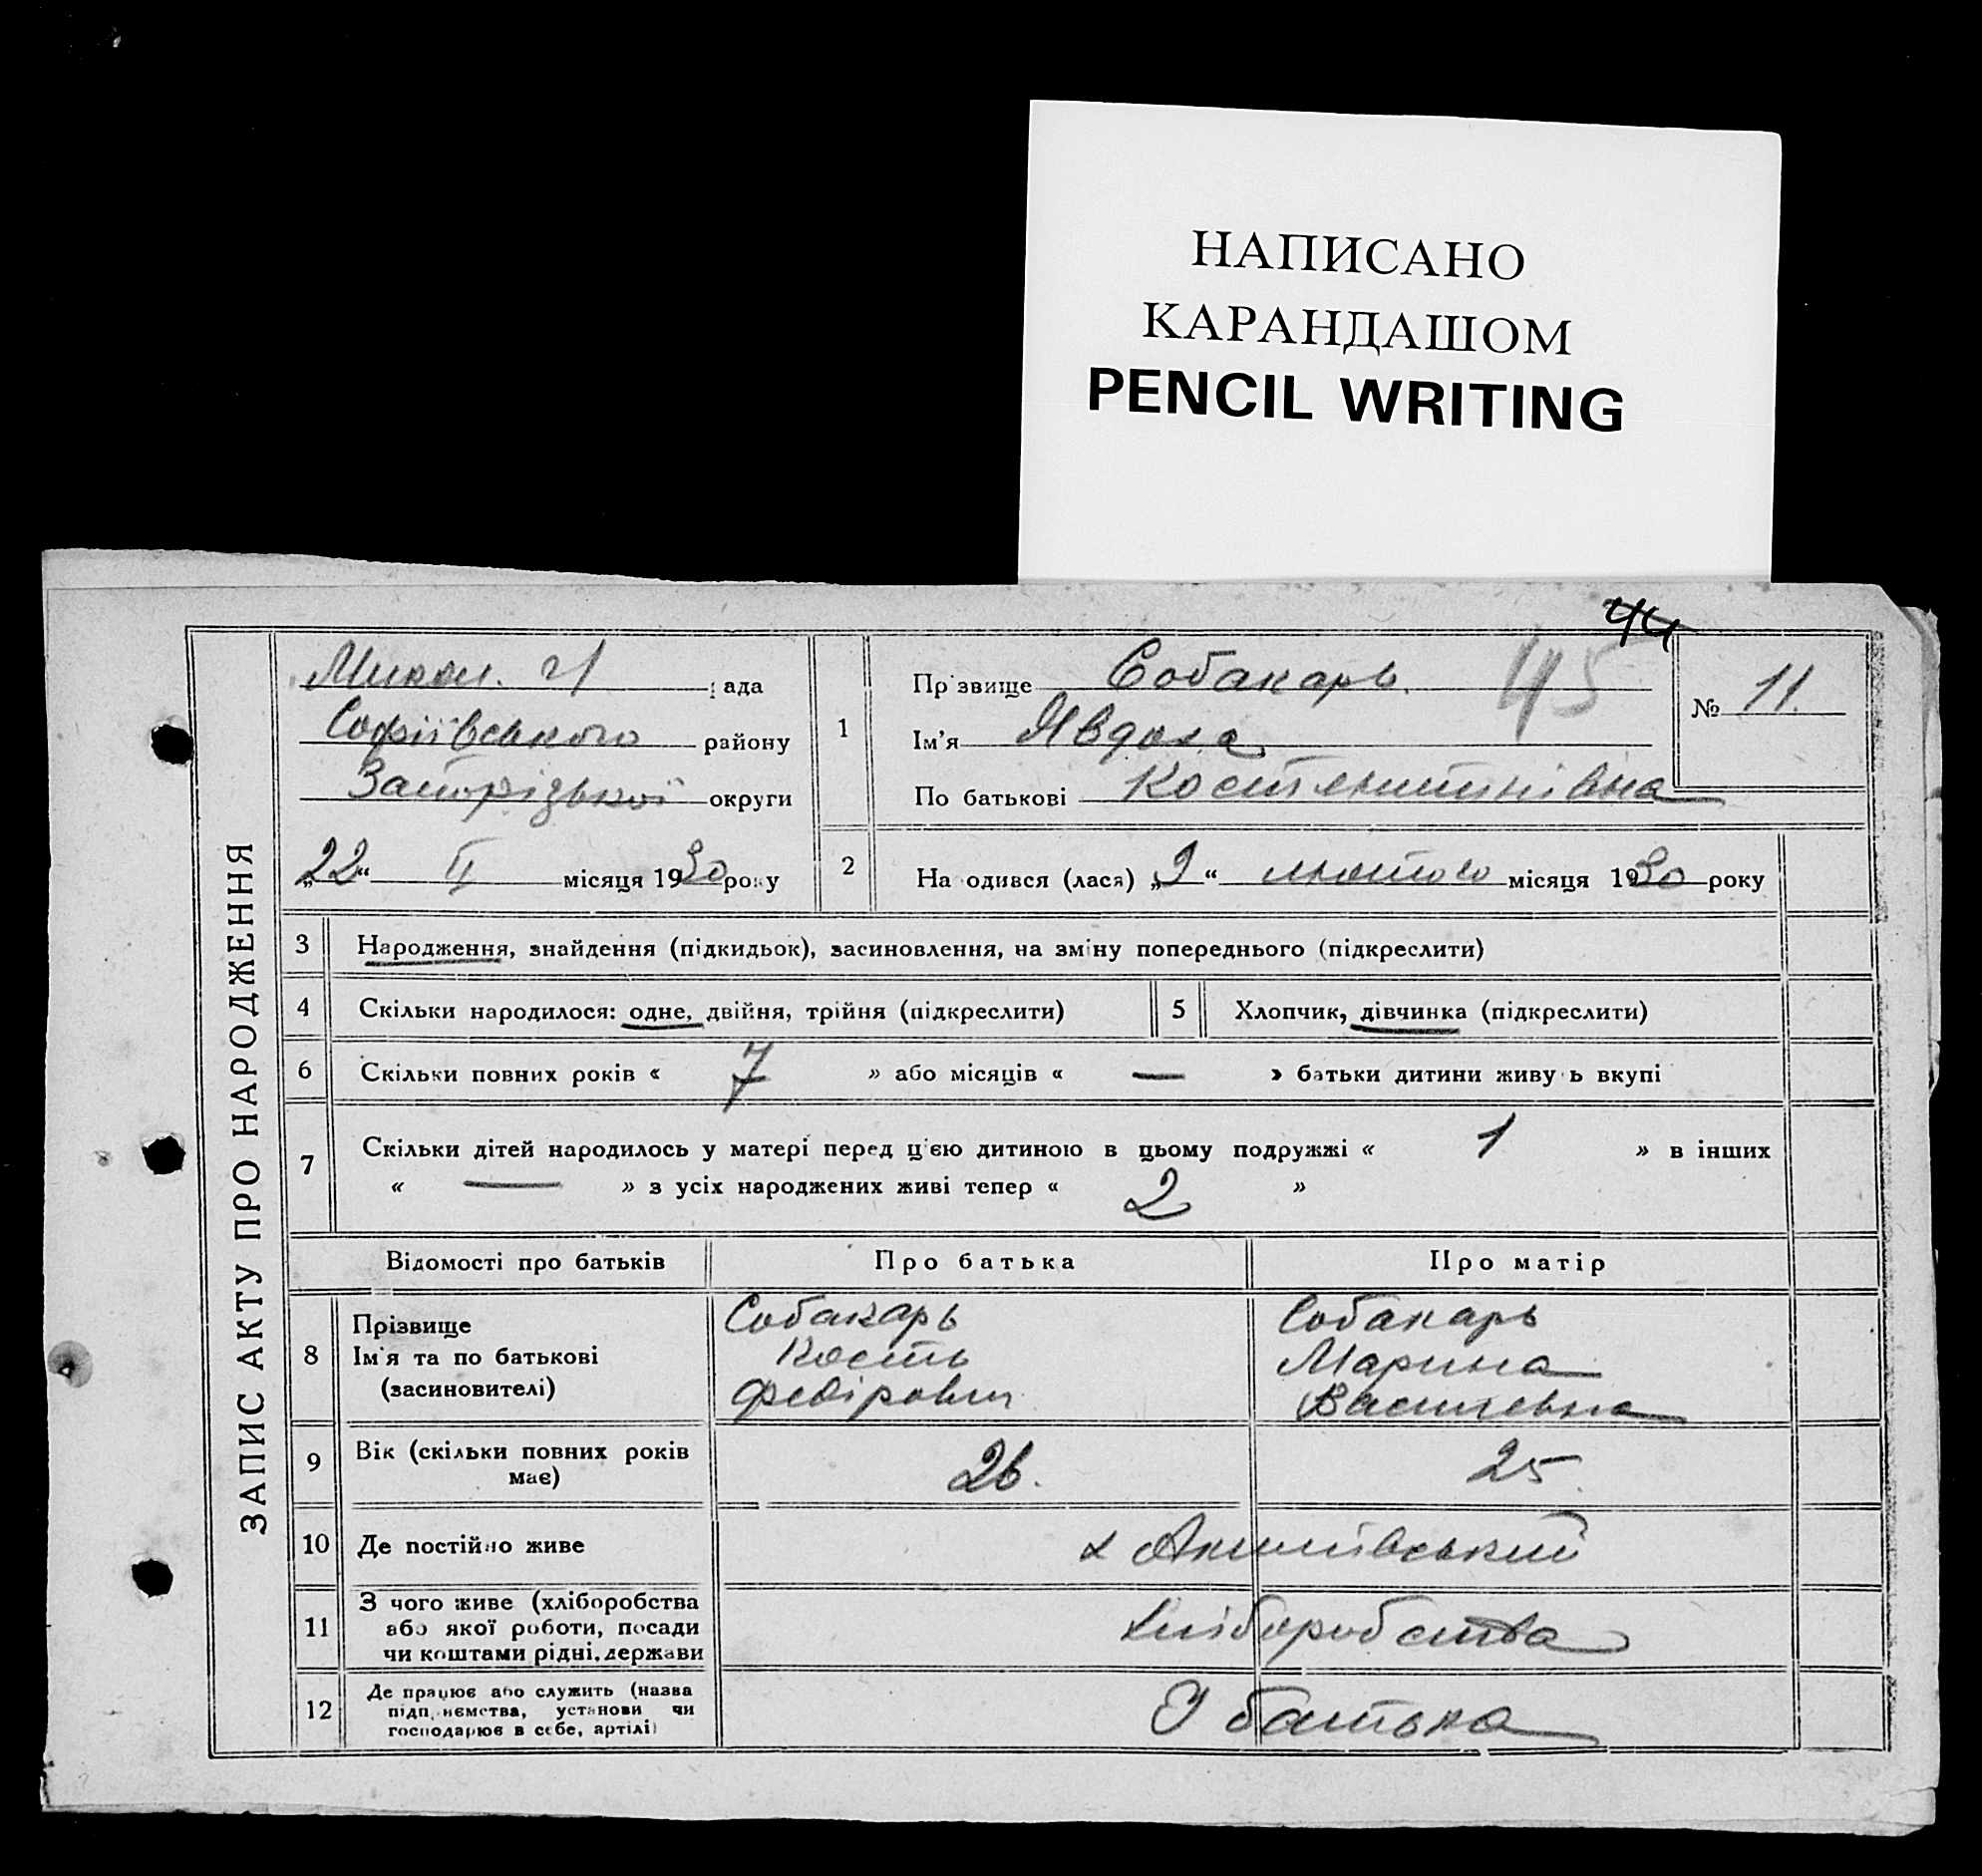 НАПИСАНО
КАРАНДАШОМ
PENCIL WRITING
44
45
ЗАПИС АКТУ ПРО НАРОДЖЕННЯ
Микол. рада
Софіївського району
Запорізької округи
„22“ II місяця 1930 року
1
Прізвище Собакарь
Ім'я Явдоха
По батькові Костянтинівна
№ 11.
2
На одився (лася) „9“ лютого місяця 1930 року
3 Народження, знайдення (підкидьок), засиновлення, на зміну попереднього (підкреслити)
4 Скільки народилося: одне, двійня, трійня (підкреслити) 5 Хлопчик, дівчинка (підкреслити)
6 Скільки повних років « 7 » або місяців « — » батьки дитини живу ь вкупі
7 Скільки дітей народилось у матері перед цією дитиною в цьому подружжі « 1 » в інших
« — » з усіх народжених живі тепер « 2 »
Відомості про батьків Про батька Про матір
8 Прізвище Собакарь Собакарь
Ім'я та по батькові Кость Марина
(засиновителі) Федірович Василевна
9 Вік (скільки повних років має) 26. 25.
10 Де постійно живе
11 З чого живе (хліборобства
або якої роботи, посади
чи коштами рідні, держави хліборобства
12 Де працює або служить (назва
підприємства, установи чи
господарює в себе, артілі) У батька